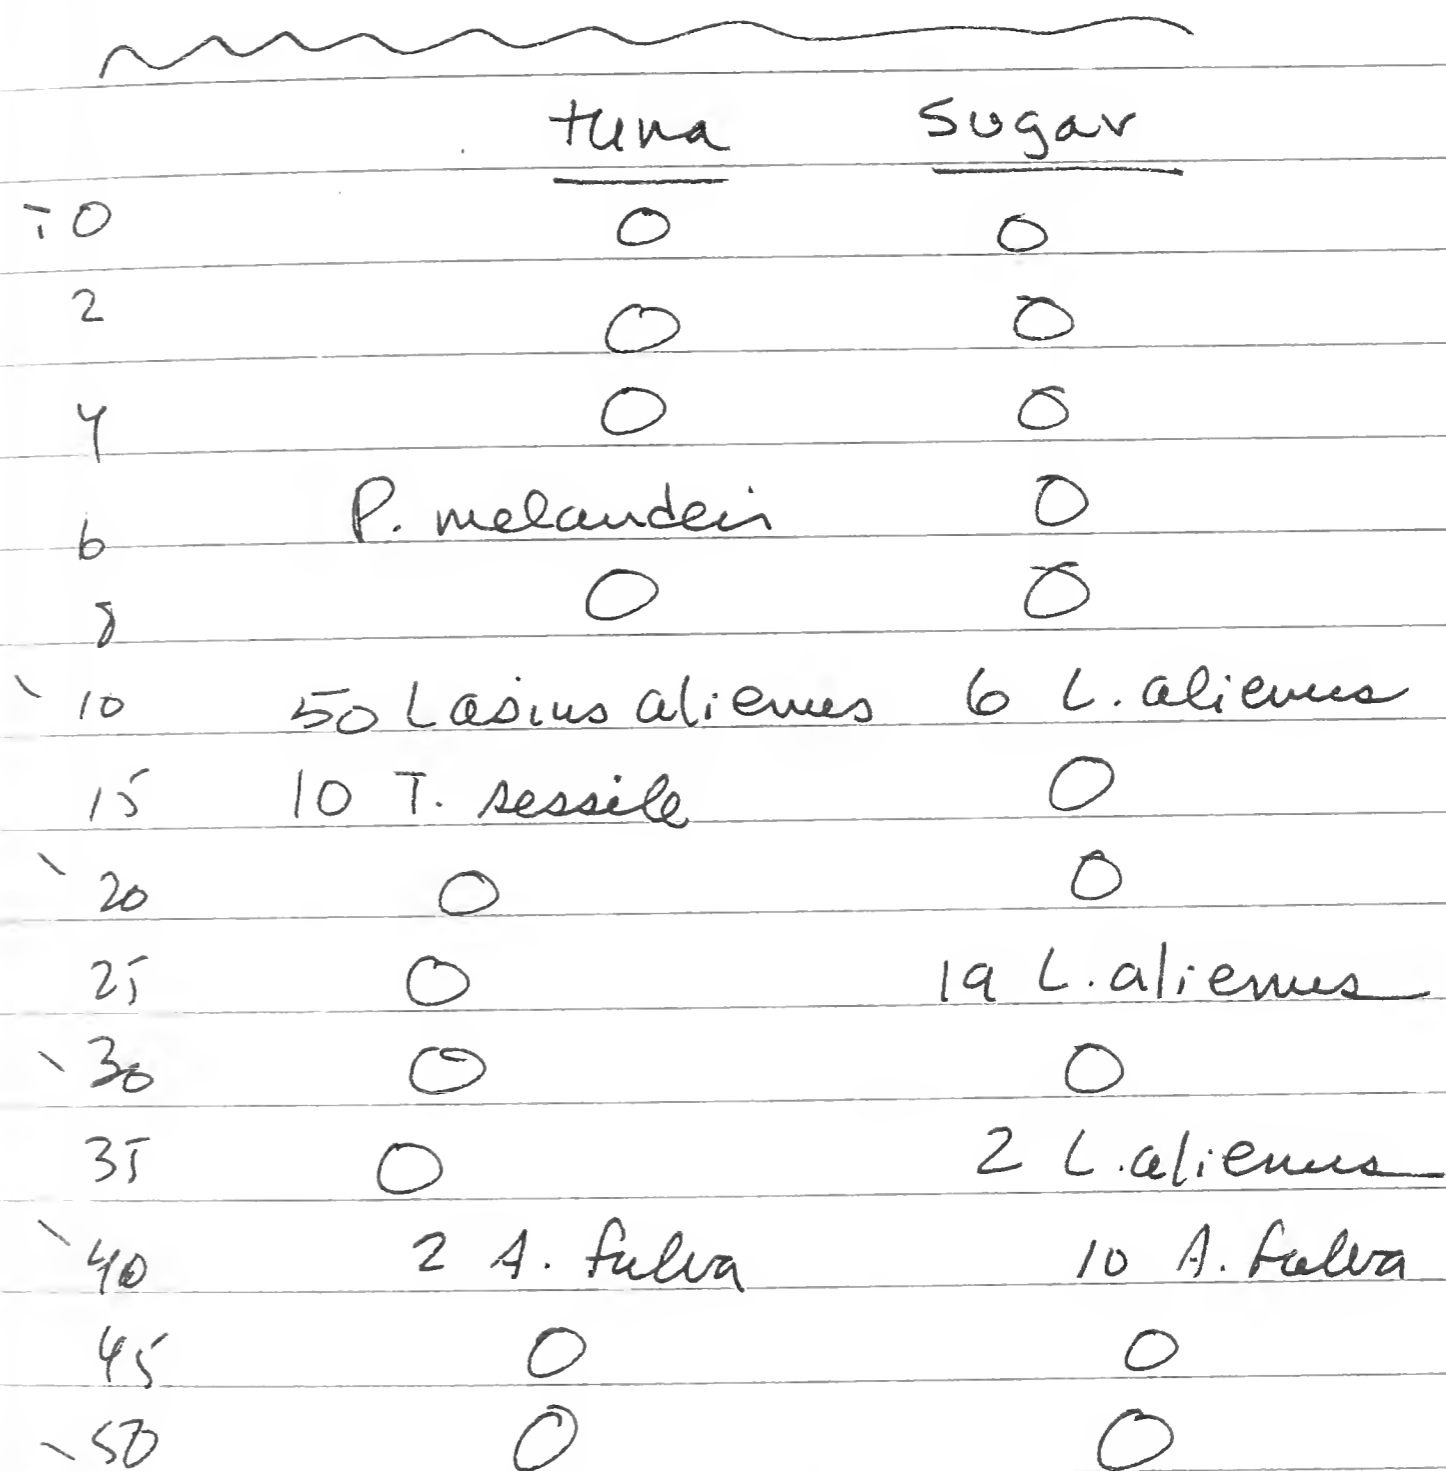 tuna sugar
0 0 0
2 0 0
4 0 0
6 P. melanderi 0
8 0 0
10 50 Lasius alienus 6 L. alienus
15 10 T. sessile 0
20 0 0
25 0 19 L. alienus
30 0 0
35 0 2 L. alienus
40 2 A. fulva 10 A. fulva
45 0 0
50 0 0